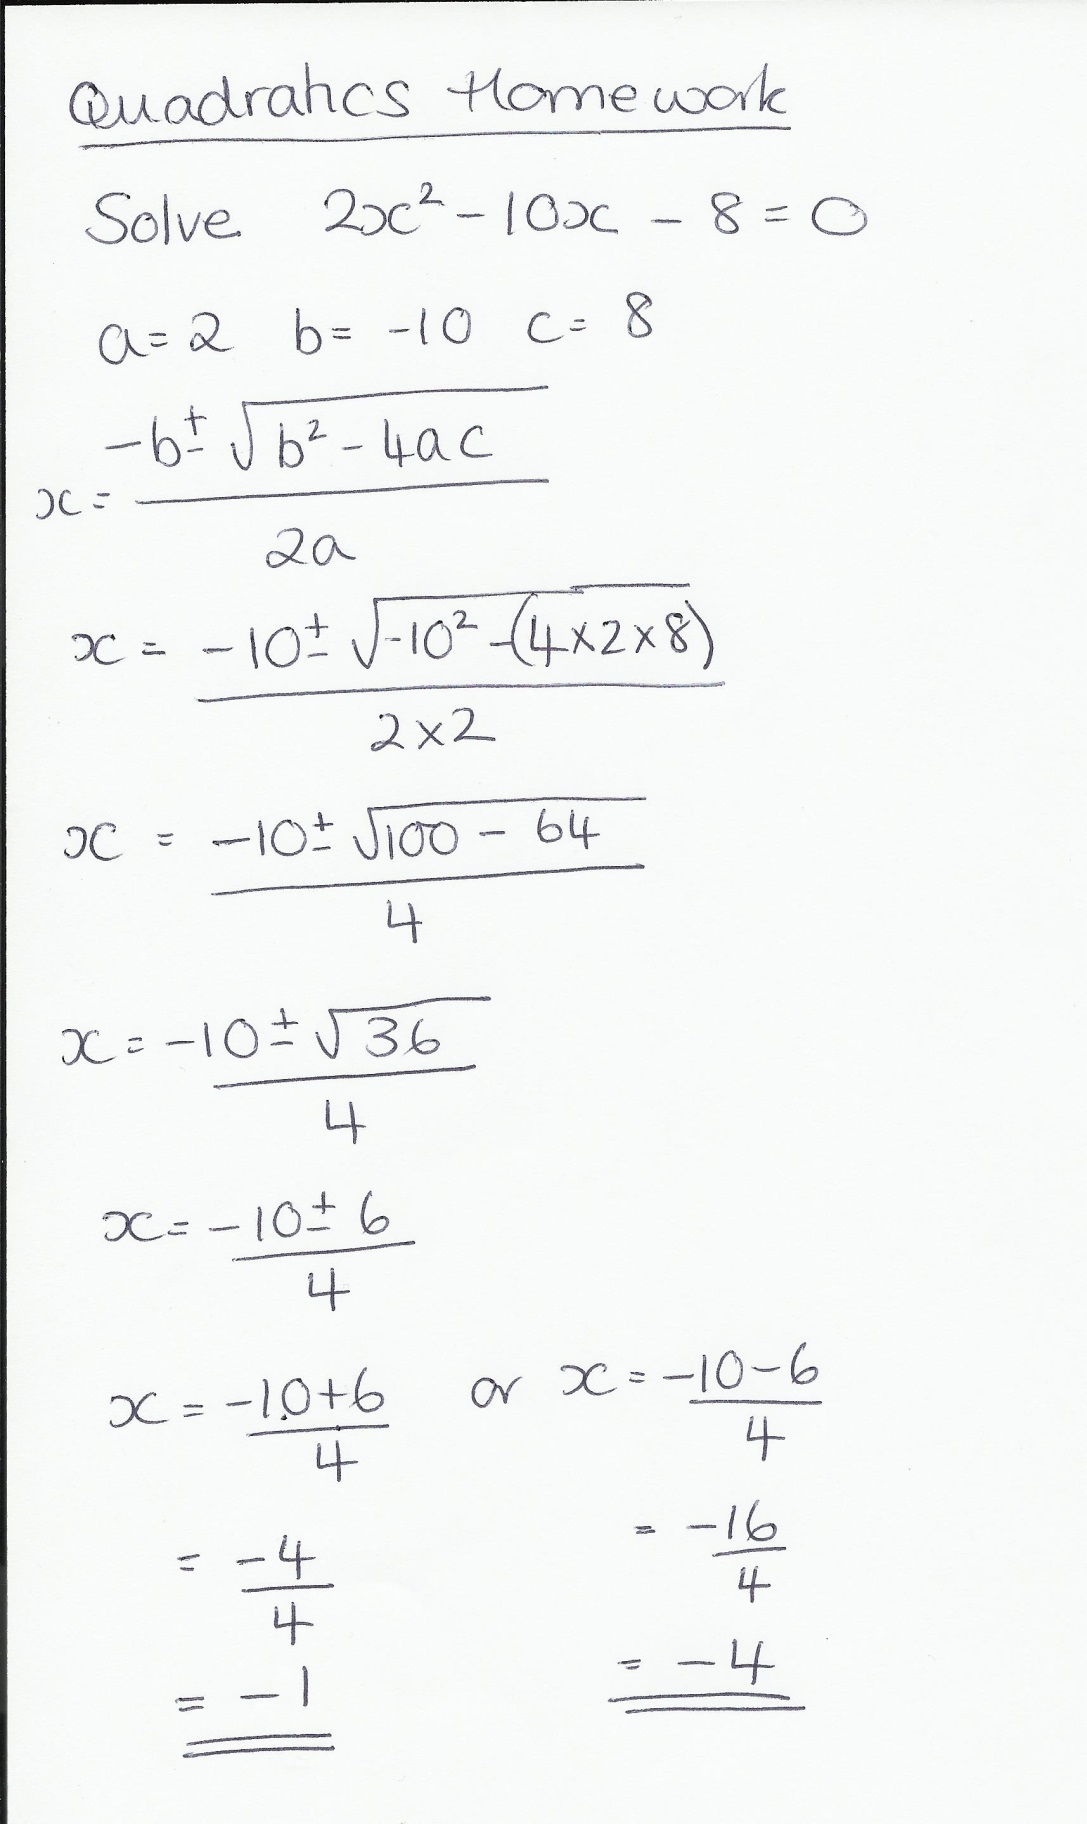 Quadratics Homework
Solve 2x² - 10x - 8 = 0
a = 2 b = -10 c = 8
x = -b ± √b² - 4ac
2a
x = -10 ± √-10² -(4×2×8)
2×2
x = -10 ± √100 - 64
4
x = -10 ± √36
4
x = -10 ± 6
4
x = -10+6 or x = -10-6
4 4
= -4 = -16
4 4
= -1 = -4